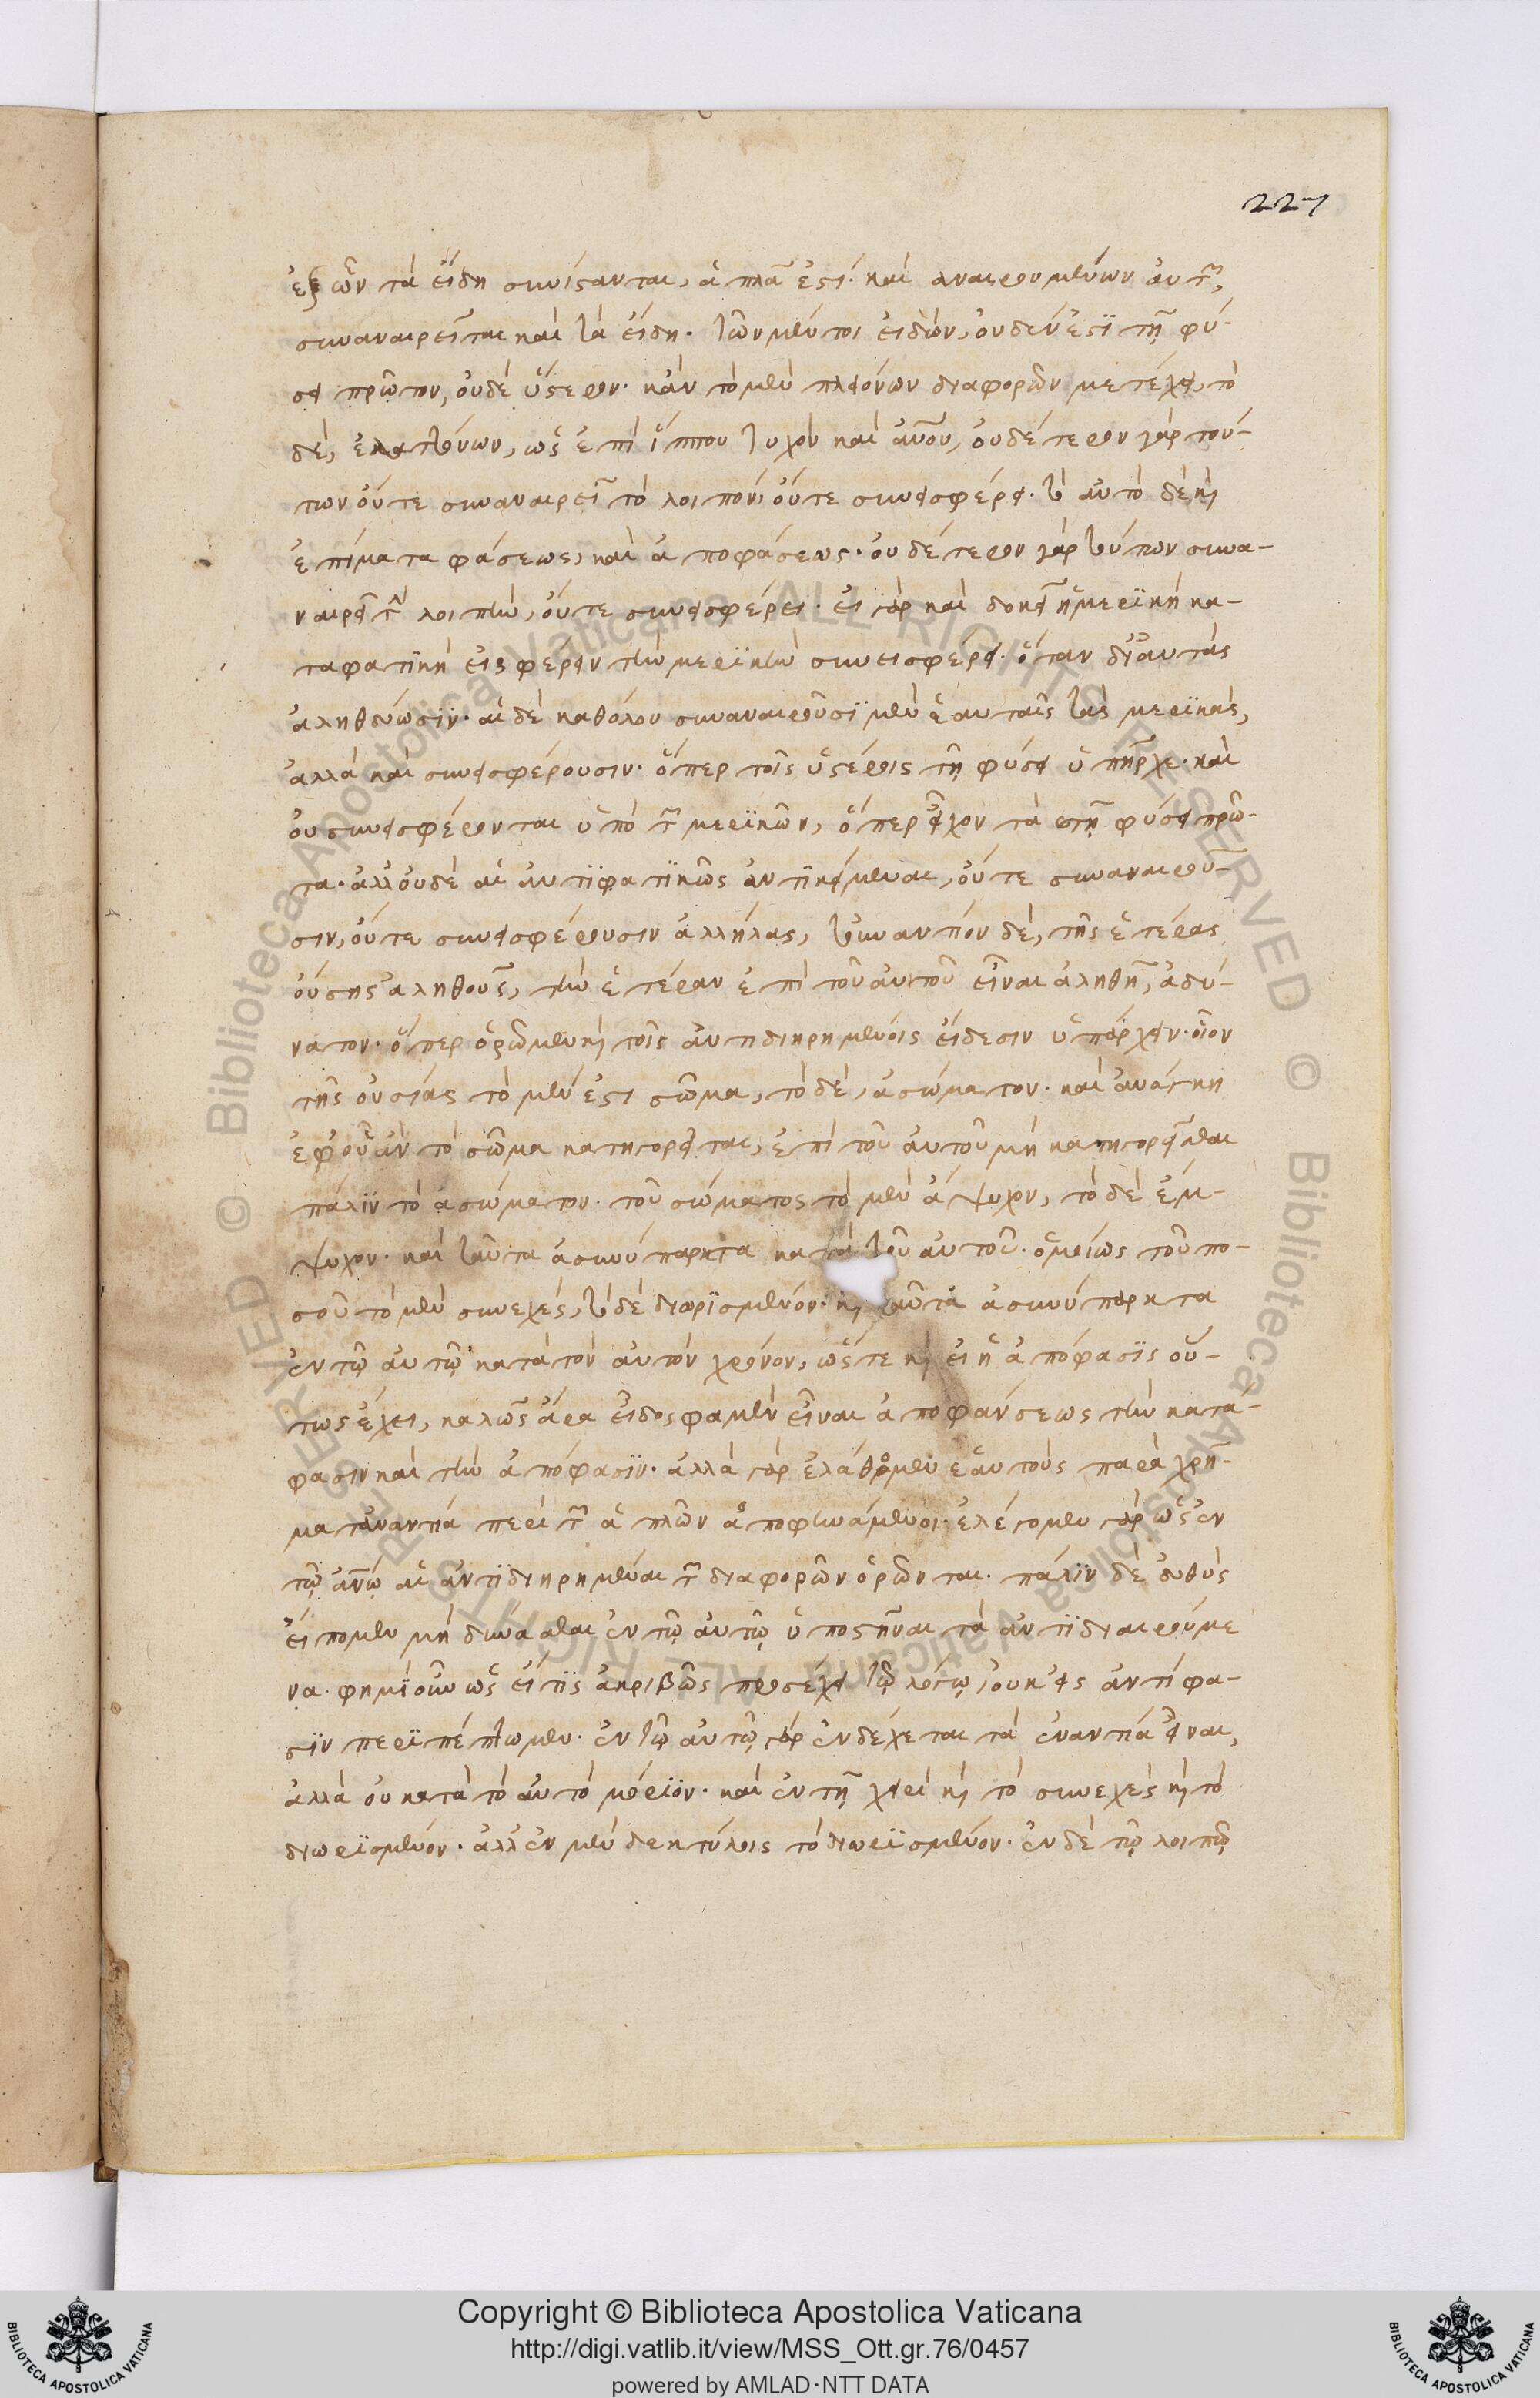 227
ἐξ ὧν τὰ εἴδη συνίστανται, ἁπλᾶ ἐστί· καὶ ἀναιρουμένων αὐτῶν,
συναναιρεῖται καὶ τὰ εἴδη. τῶν μέντοι εἰδῶν, οὐδέν ἐστι τῇ φύ-
σει πρῶτον, οὐδὲ ὕστερον. κἂν τὸ μὲν πλειόνων διαφορῶν μετέχει, τὸ
δὲ, ἐλαττόνων, ὡς ἐπὶ ἵππου τυχὸν καὶ ἀνου, οὐδέτερον γὰρ τού-
των οὔτε συναναιρεῖ τὸ λοιπὸν, οὔτε συνεισφέρει. τὸ αὐτὸ δὲ καὶ
ἐπὶ καταφάσεως, καὶ ἀποφάσεως. οὐδέτερον γὰρ τούτων συνα-
ναιρεῖ τὴν λοιπὴν, οὔτε συνεισφέρει. εἰ γὰρ καὶ δοκεῖ ἡ μερικὴ κα-
ταφατικὴ εἰσφέρειν τὴν μερικὴν συνεισφέρει. ὅταν δι' αὐτὰς
ἀληθεύωσιν. αἱ δὲ καθόλου συναναιροῦσι μὲν ἑαυταῖς τὰς μερικὰς,
ἀλλὰ καὶ συνεισφέρουσιν. ὅπερ τοῖς ὑστέροις τῇ φύσει ὑπῆρχε. καὶ
οὐ συνεισφέρονται ὑπὸ τῶν μερικῶν, ὅπερ εἶχον τὰ τῇ φύσει πρῶ-
τα. ἀλλ' οὐδὲ αἱ ἀντιφατικῶς ἀντικείμεναι, οὔτε συναναιροῦ-
σιν, οὔτε συνεισφέρουσιν ἀλλήλας, τοὐναντίον δὲ, τῆς ἑτέρας
οὔσης ἀληθοῦς, τὴν ἑτέραν ἐπὶ τοῦ αὐτοῦ εἶναι ἀληθῆ, ἀδύ-
νατον. ὅπερ ὁρῶμεν καὶ τοῖς ἀντιδιηρημένοις εἴδεσιν ὑπάρχειν. οἷον
τῆς οὐσίας τὸ μέν ἐστι σῶμα, τὸ δὲ, ἀσώματον. καὶ ἀνάγκη
ἐφ' οὗ ἂν τὸ σῶμα κατηγορεῖται, ἐπὶ τοῦ αὐτοῦ μὴ κατηγορεῖσθαι
πάλιν τὸ ἀσώματον. τοῦ σώματος τὸ μὲν ἄψυχον, τὸ δὲ ἔμ-
ψυχον. καὶ ταῦτα ἀσυνύπαρκτα κατὰ τοῦ αὐτοῦ. ὁμοίως τοῦ πο-
σοῦ τὸ μὲν συνεχὲς, τὸ δὲ διωρισμένον. καὶ ταῦτα ἀσυνύπαρκτα
ἐν τῷ αὐτῷ κατὰ τὸν αὐτὸν χρόνον, ὥστε καὶ εἰ ἡ ἀπόφασις οὕ-
τως ἔχει, καλῶς ἄρα εἶδος φαμὲν εἶναι ἀποφάνσεως τὴν κατά-
φασιν καὶ τὴν ἀπόφασιν. ἀλλὰ γὰρ ἐλάθομεν ἑαυτοὺς παρὰ χρῆ-
μα τἀναντία περὶ τῶν ἁπλῶν ἀποφηνάμενοι. ἐλέγομεν γὰρ ὡς ἐν
τῷ ἀνῳ αἱ ἀντιδιηρημέναι τῶν διαφορῶν ὁρῶνται. πάλιν δὲ εὐθὺς
εἴπομεν μὴ δύνασθαι ἐν τῷ αὐτῷ ὑποστῆναι τὰ ἀντιδιαιρούμε
να. φημὶ οὖν ὡς εἴ τις ἀκριβῶς προσέχει τῷ λόγῳ, οὐκ εἰς ἀντίφα-
σιν περιπέπτωμεν. ἐν τῷ αὐτῷ γὰρ ἐνδέχεται τὰ ἐναντία εἶναι,
ἀλλὰ οὐ κατὰ τὸ αὐτὸ μόριον. καὶ ἐν τῇ χειρὶ καὶ τὸ συνεχὲς καὶ τὸ
διωρισμένον. ἀλλ' ἐν μὲν δακτύλοις τὸ διωρισμένον. ἐν δὲ τῷ λοιπῷ
Copyright © Biblioteca Apostolica Vaticana
http://digi.vatlib.it/view/MSS_Ott.gr.76/0457
powered by AMLAD·NTT DATA